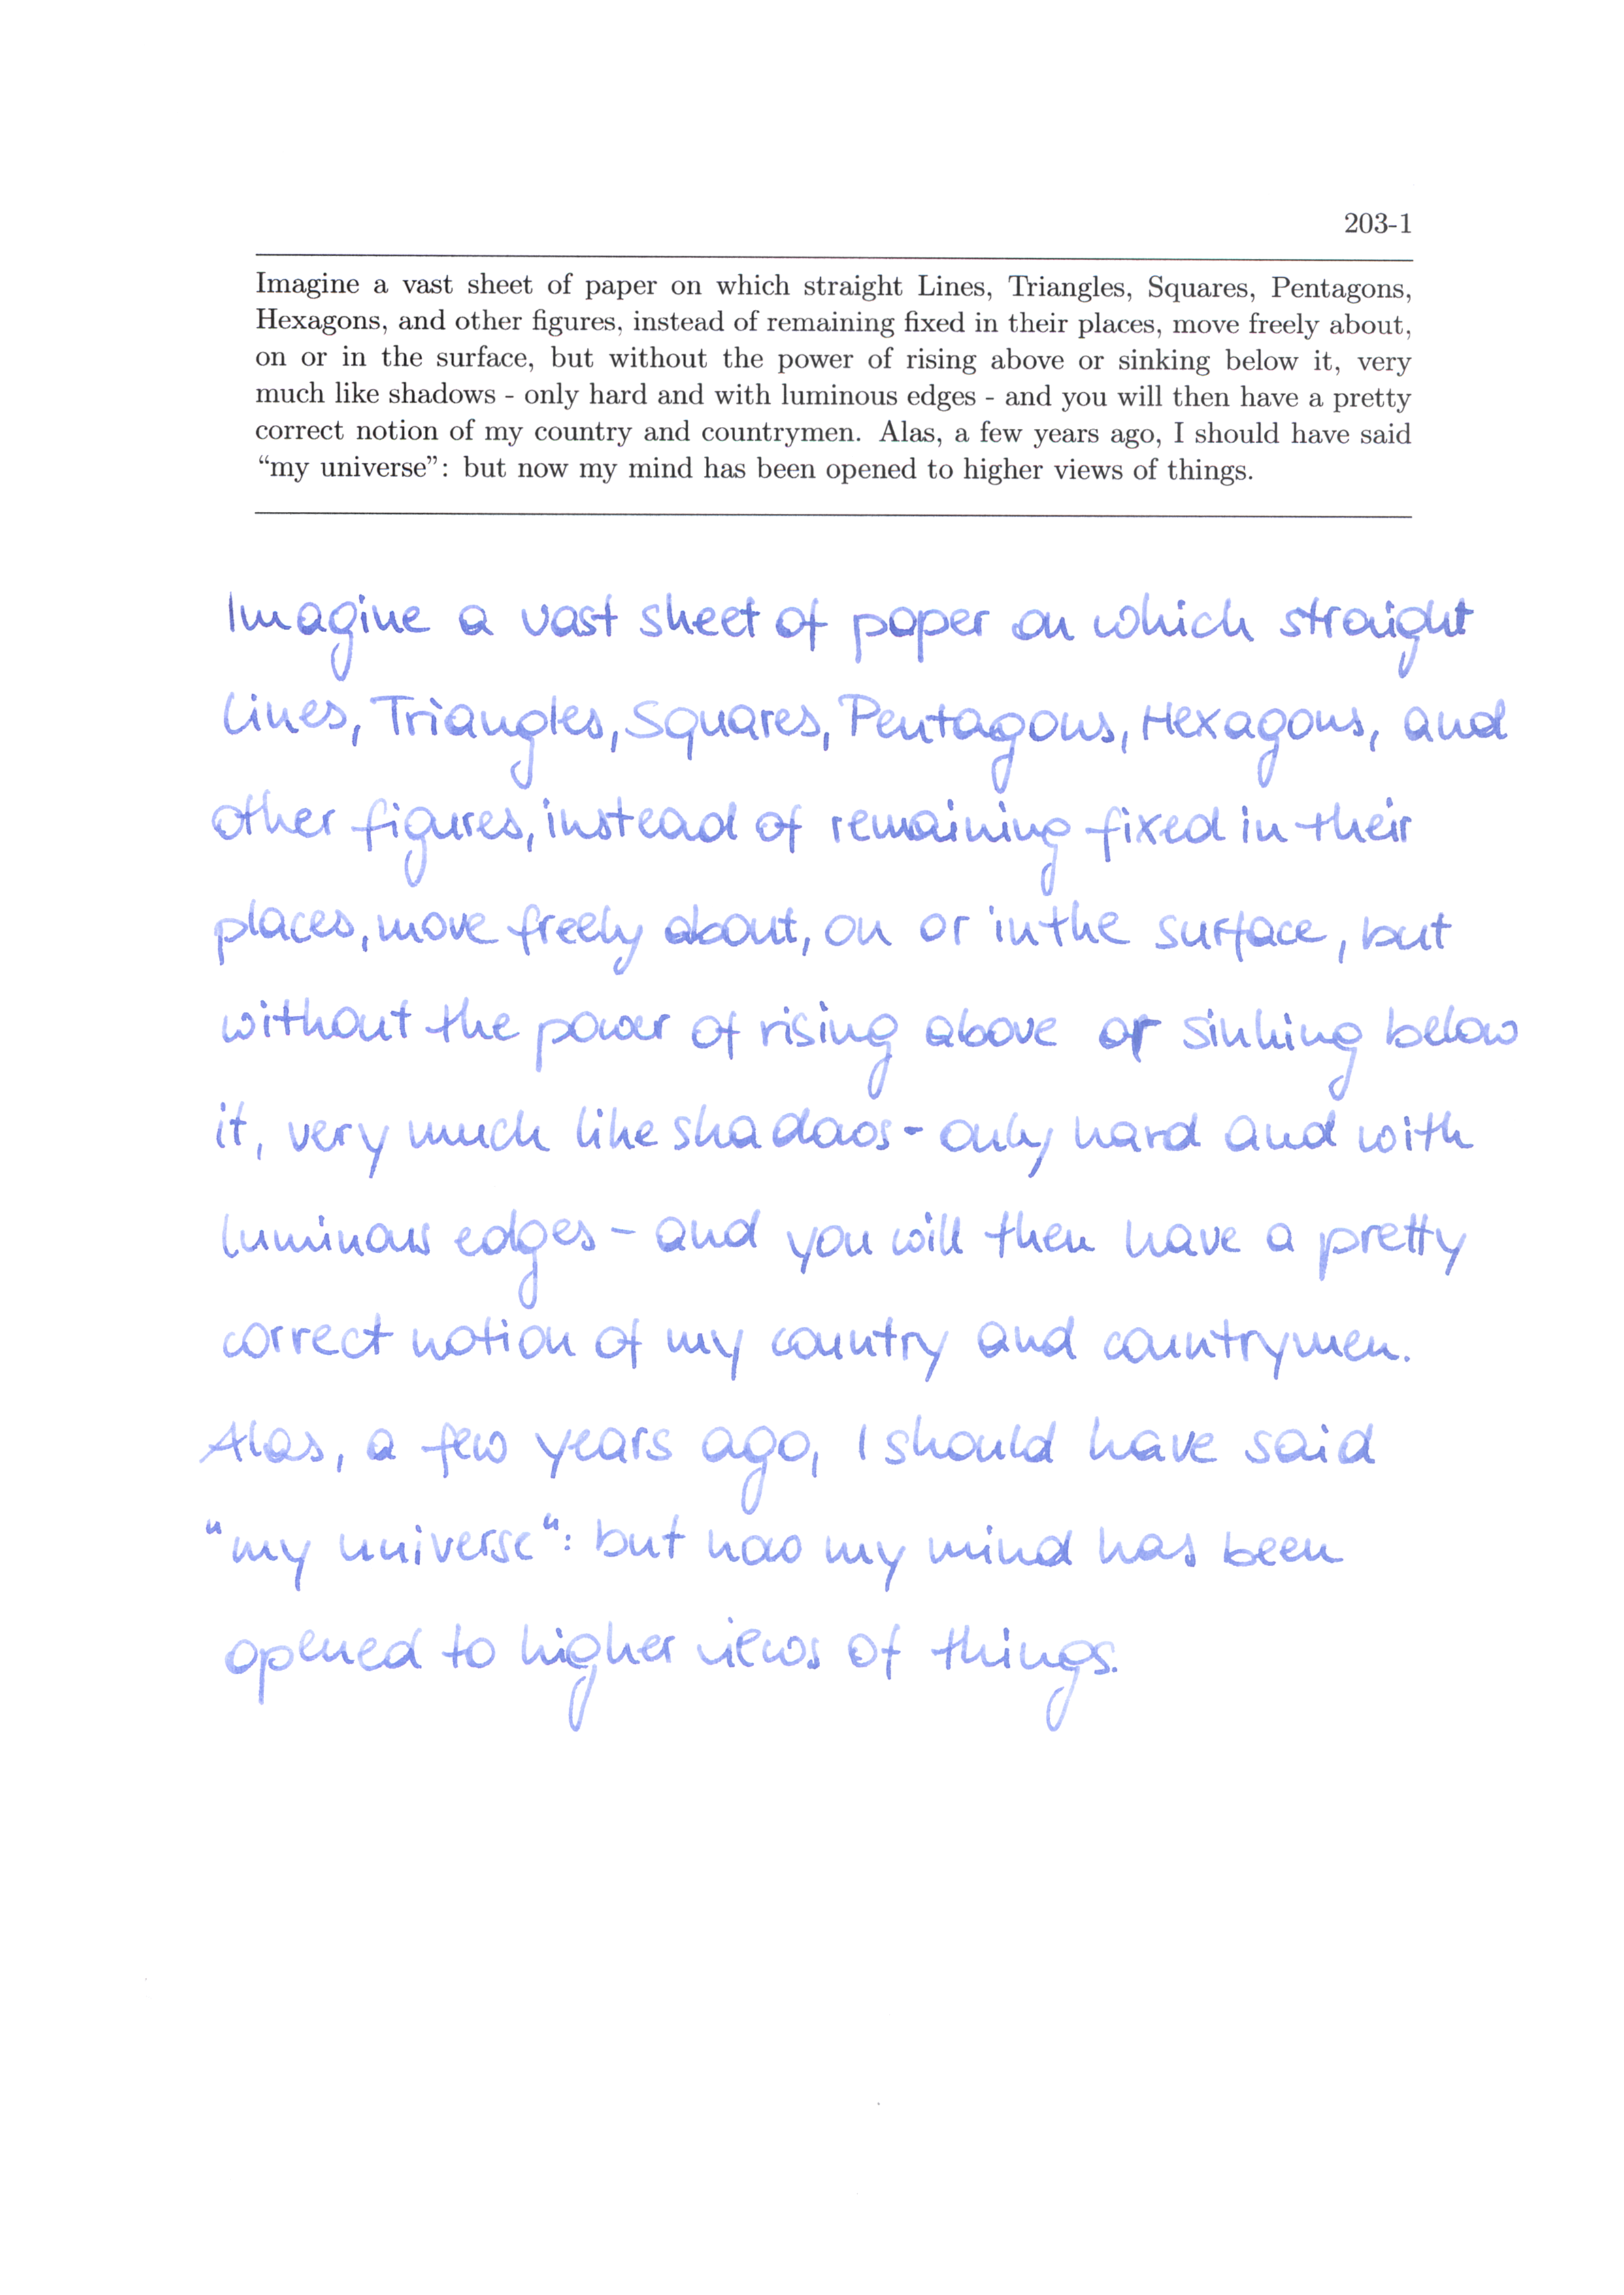 203-1
Imagine a vast sheet of paper on which straight Lines, Triangles, Squares, Pentagons,
Hexagons, and other figures, instead of remaining fixed in their places, move freely about,
on or in the surface, but without the power of rising above or sinking below it, very
much like shadows - only hard and with luminous edges - and you will then have a pretty
correct notion of my country and countrymen. Alas, a few years ago, I should have said
“my universe”: but now my mind has been opened to higher views of things.
Imagine a vast sheet of paper on which straight
Lines, Triangles, Squares, Pentagons, Hexagons, and
other figures, instead of remaining fixed in their
places, move freely about, on or in the surface, but
without the power of rising above or sinking below
it, very much like shadows - only hard and with
luminous edges - and you will then have a pretty
correct notion of my country and countrymen.
Alas, a few years ago, I should have said
"my universe": but now my mind has been
opened to higher views of things.